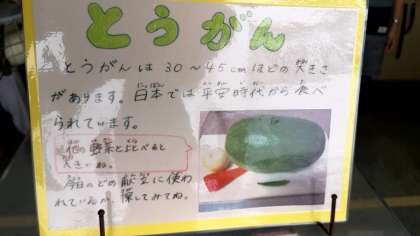 とうがん
とうがんは30〜45cmほどの大きさ
があります。日本では平安時代から食べ
られています。
他の野菜と比べると
大きいね。
今日のどの献立に使わ
れているか、探してみてね。